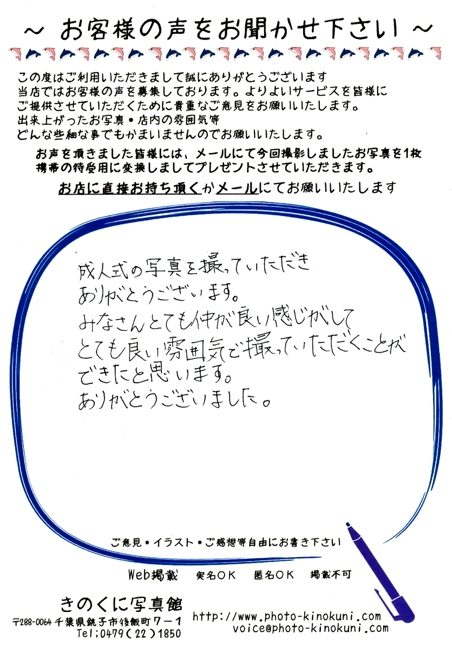 ～ お客様の声をお聞かせ下さい ～
この度はご利用いただきまして誠にありがとうございます
当店ではお客様の声を募集しております。よりよいサービスを皆様に
ご提供させていただくために貴重なご意見をお願いいたします。
出来上がったお写真・店内の雰囲気等
どんな些細な事でもかまいませんのでお願いいたします。
お声を頂きました皆様には、メールにて今回撮影しましたお写真を1枚
携帯の待受用に変換しましてプレゼントさせていただきます。
お店に直接お持ち頂くかメールにてお願いいたします
成人式の写真を撮っていただき
ありがとうございます。
みなさんとても仲が良い感じがして
とても良い雰囲気で撮っていただくことが
できたと思います。
ありがとうございました。
ご意見・イラスト・ご感想等自由にお書き下さい
Web掲載 実名OK 匿名OK 掲載不可
きのくに写真館
〒288-0064 千葉県銚子市後飯町7－1
Tel;0479（22）1850
http://www.photo-kinokuni.com/
voice@photo-kinokuni.com